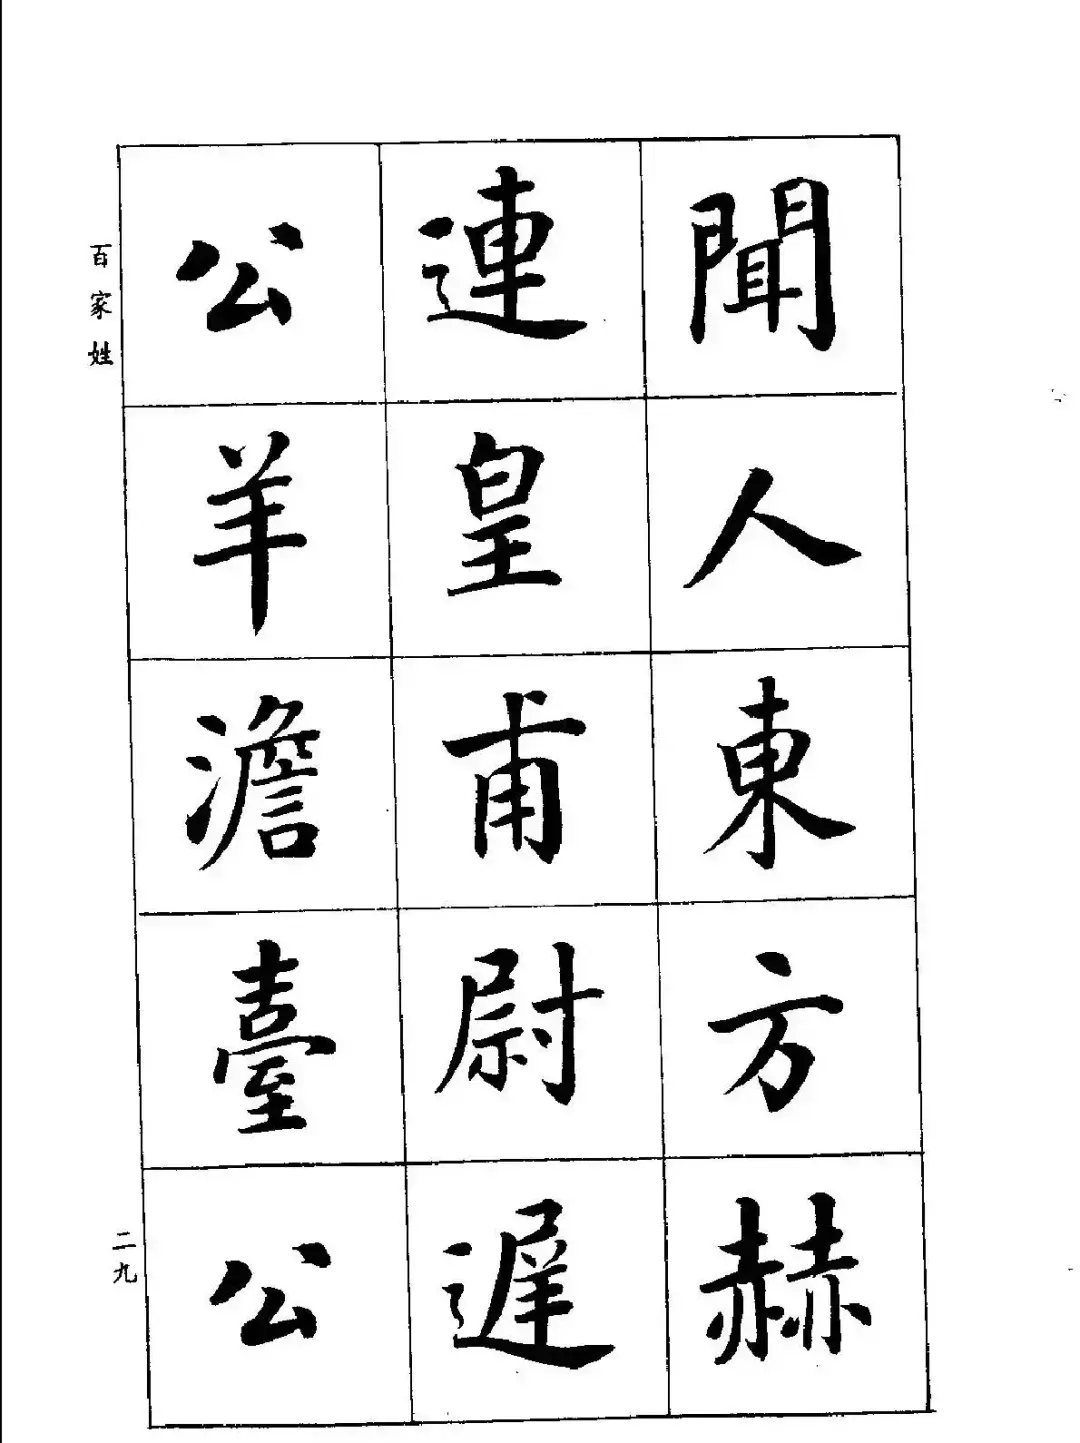 聞人東方赫
連皇甫尉遲
公羊澹臺公
百家姓
二九